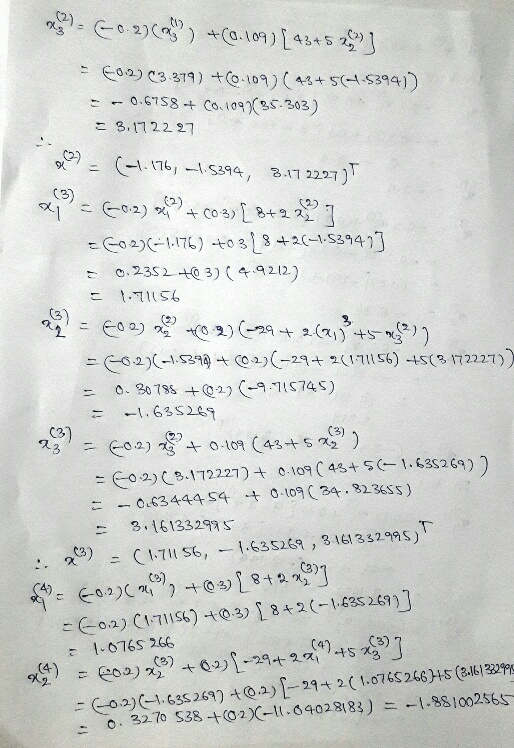 x₃⁽²⁾ = (-0.2)(x₃⁽¹⁾) + (0.109) [43+5 x₂⁽²⁾]
= (-0.2) (3.379) + (0.109) (43+5(-1.5394))
= - 0.6758 + (0.109)(35.303)
= 3.172227
∴ x⁽²⁾ = (-1.176, -1.5394, 3.172227)ᵀ
x₁⁽³⁾ = (-0.2) x₁⁽²⁾ + (0.3) [8+2 x₂⁽²⁾]
= (-0.2)(-1.176) + 0.3 [8+2(-1.5394)]
= 0.2352 + (0.3) (4.9212)
= 1.71156
x₂⁽³⁾ = (-0.2) x₂⁽²⁾ + (0.2) (-29 + 2(x₁)³ + 5 x₃⁽²⁾)
= (-0.2)(-1.5394) + (0.2) (-29+2(1.71156) +5(3.172227))
= 0.30788 + (0.2) (-9.715745)
= -1.635269
x₃⁽³⁾ = (-0.2) x₃⁽²⁾ + 0.109 (43+5 x₂⁽³⁾)
= (-0.2) (3.172227) + 0.109 (43+5(-1.635269))
= -0.6344454 + 0.109 (34.823655)
= 3.161332995
∴ x⁽³⁾ = (1.71156, -1.635269, 3.161332995)ᵀ
x₁⁽⁴⁾ = (-0.2)(x₁⁽³⁾) + (0.3) [8+2 x₂⁽³⁾]
= (-0.2) (1.71156) + (0.3) [8+2(-1.635269)]
= 1.0765266
x₂⁽⁴⁾ = (-0.2) x₂⁽³⁾ + (0.2) [-29+2 x₁⁽⁴⁾ +5 x₃⁽³⁾]
= (-0.2)(-1.635269) + (0.2) [-29+2(1.0765266)+5(3.161332995
= 0.3270538 + (0.2)(-11.04028183) = -1.881002565